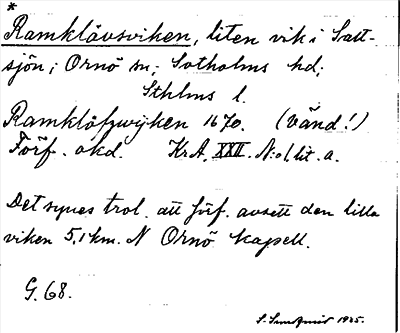 *
Ramklåvsviken, liten vik i Saxt-
sjön; Ornö sn; Sotholms hd;
Sthlms l.
Ramklåfzwijken 1670. (vänd!)
Förf. okd. KrA, XXII. N:o 1 lit. a.
Det synes trol. att förf. avsett den lilla
viken 5,1 km. N Ornö kapell.
G. 68.
1925.